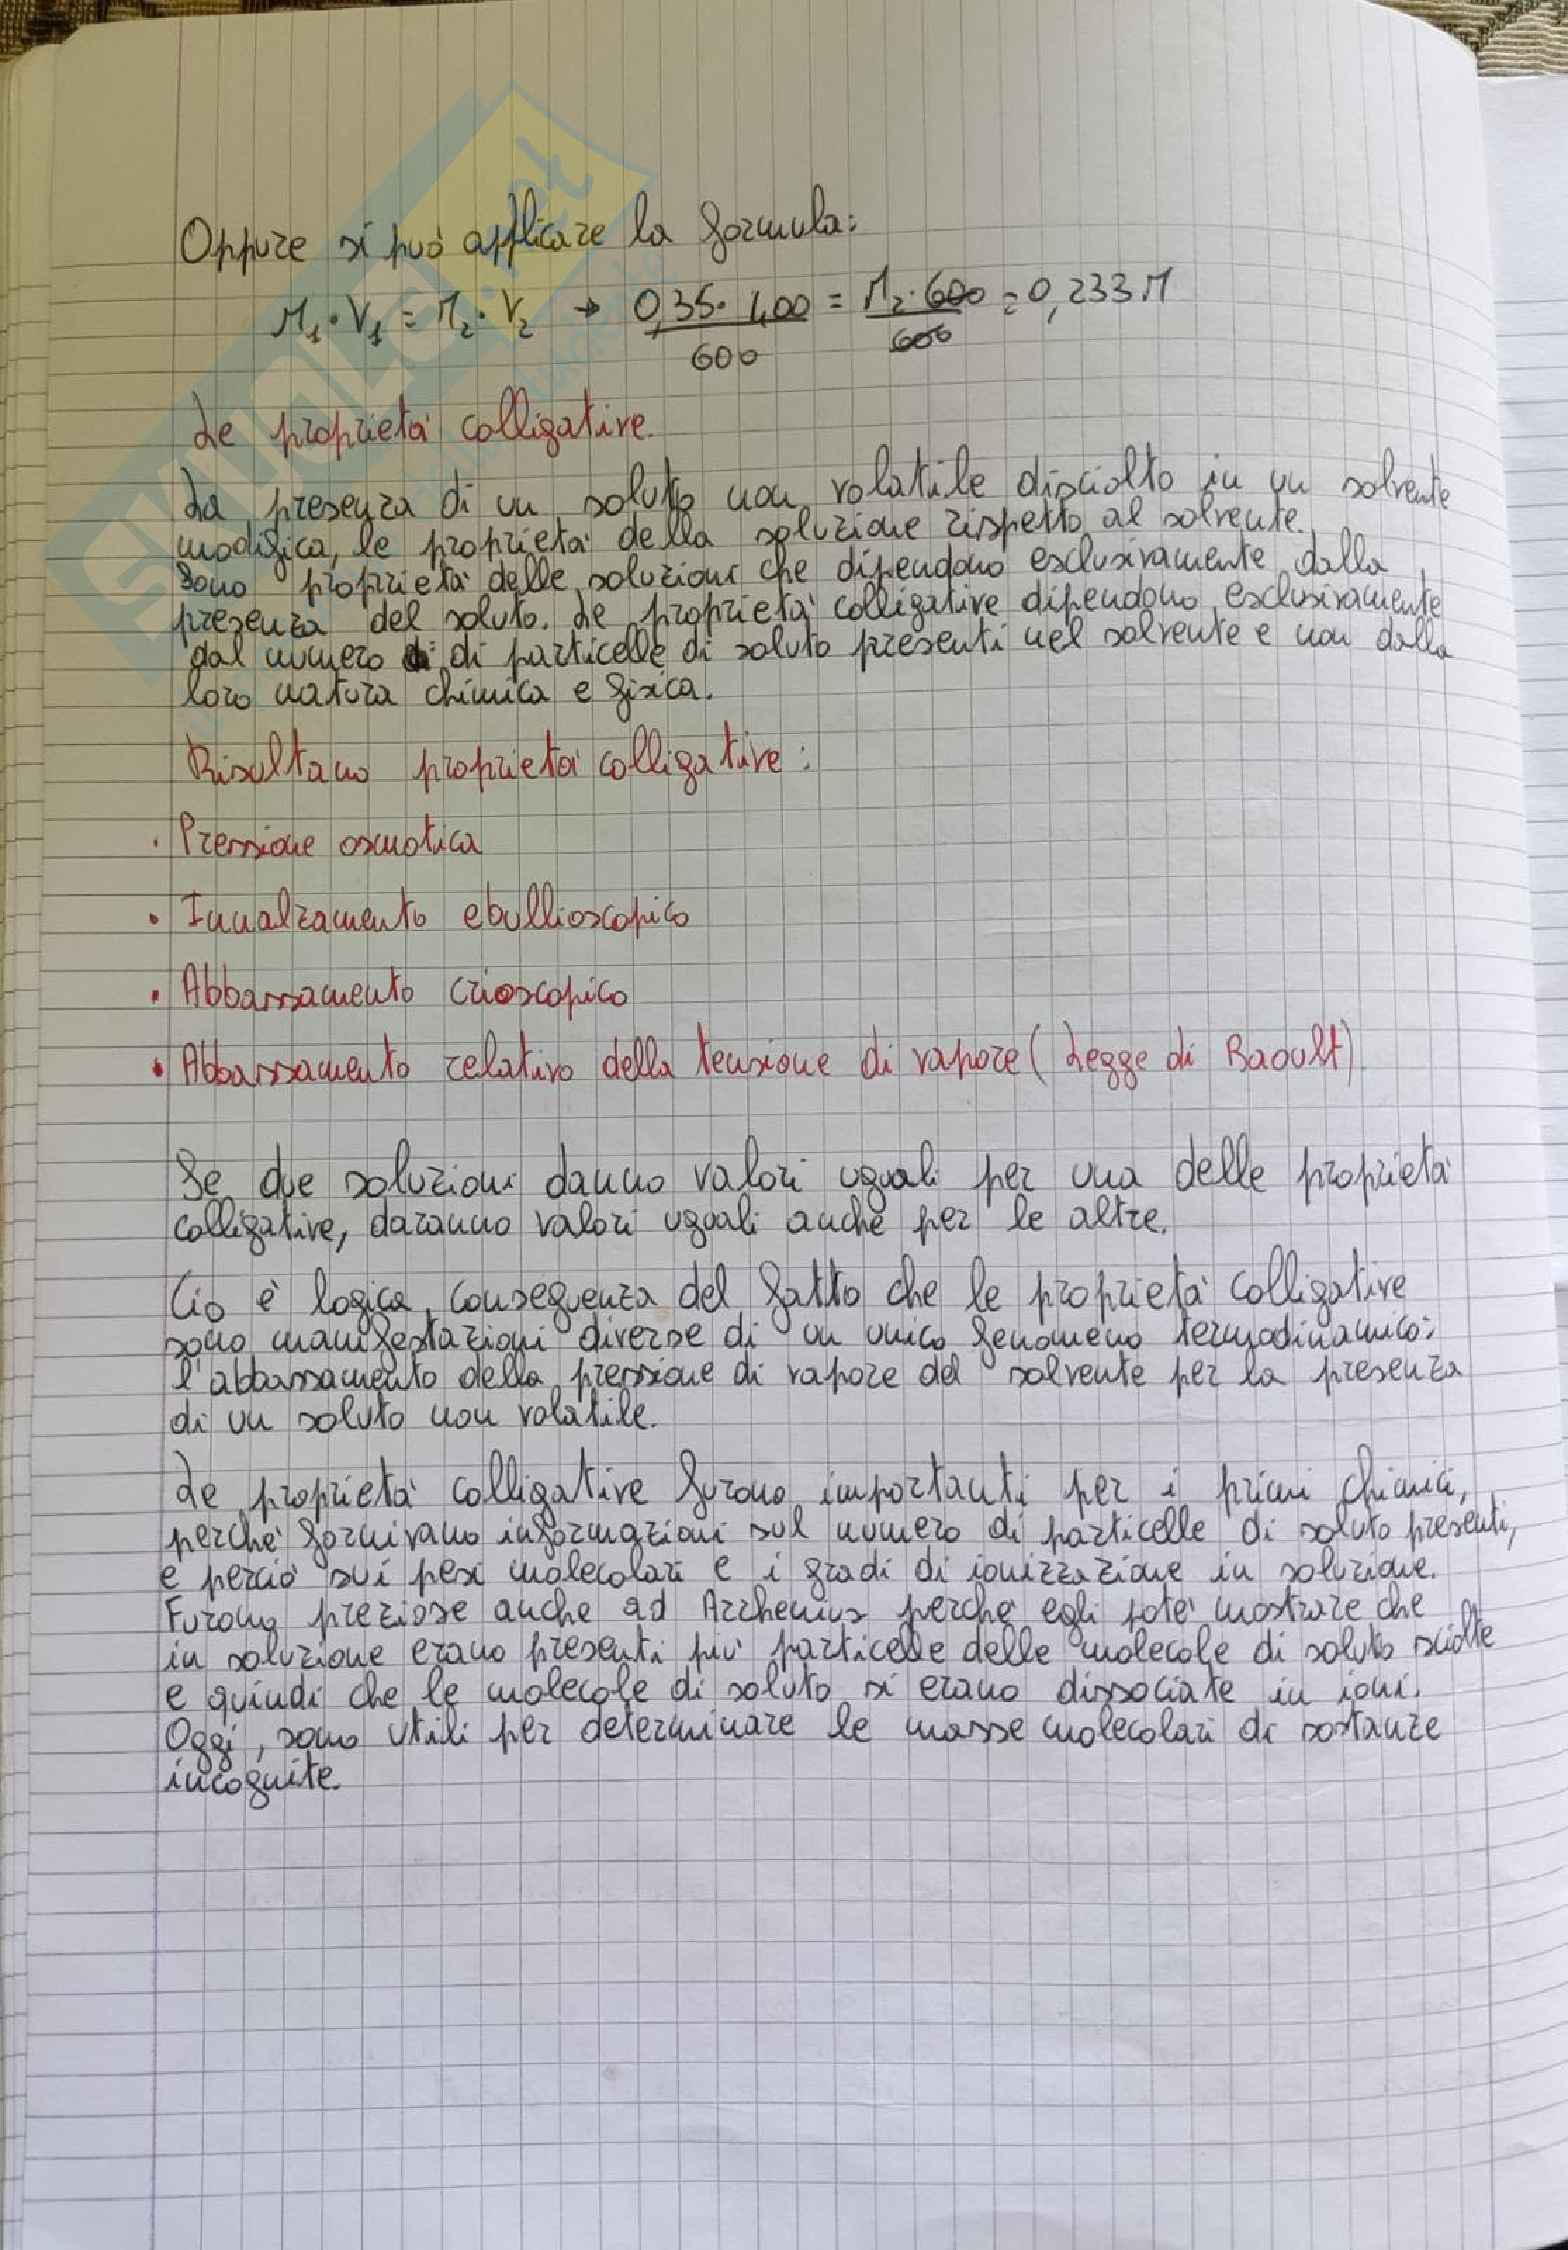 Oppure si può applicare la formula:
M₁·V₁ = M₂·V₂ → 0,35·400/600 = M₂·600/600 = 0,233 M
Le proprietà colligative.
La presenza di un soluto non volatile disciolto in un solvente
modifica, le proprietà della soluzione rispetto al solvente.
Sono proprietà delle soluzioni che dipendono esclusivamente dalla
presenza del soluto. Le proprietà colligative dipendono esclusivamente
dal numero di di particelle di soluto presenti nel solvente e non dalla
loro natura chimica e fisica.
Risultano proprietà colligative:
· Pressione osmotica
• Innalzamento ebullioscopico
• Abbassamento crioscopico
• Abbassamento relativo della tensione di vapore (Legge di Raoult).
Se due soluzioni danno valori uguali per una delle proprietà
colligative, daranno valori uguali anche per le altre.
Ciò è logica conseguenza del fatto che le proprietà colligative
sono manifestazioni diverse di un unico fenomeno termodinamico:
l'abbassamento della pressione di vapore del solvente per la presenza
di un soluto non volatile.
Le proprietà colligative furono importanti per i primi chimici,
perché fornivano informazioni sul numero di particelle di soluto presenti,
e perciò sui pesi molecolari e i gradi di ionizzazione in soluzione.
Furono preziose anche ad Arrhenius perché egli poté mostrare che
in soluzione erano presenti più particelle delle molecole di soluto sciolte
e quindi che le molecole di soluto si erano dissociate in ioni.
Oggi, sono utili per determinare le masse molecolari di sostanze
incognite.
SKUOLA.net